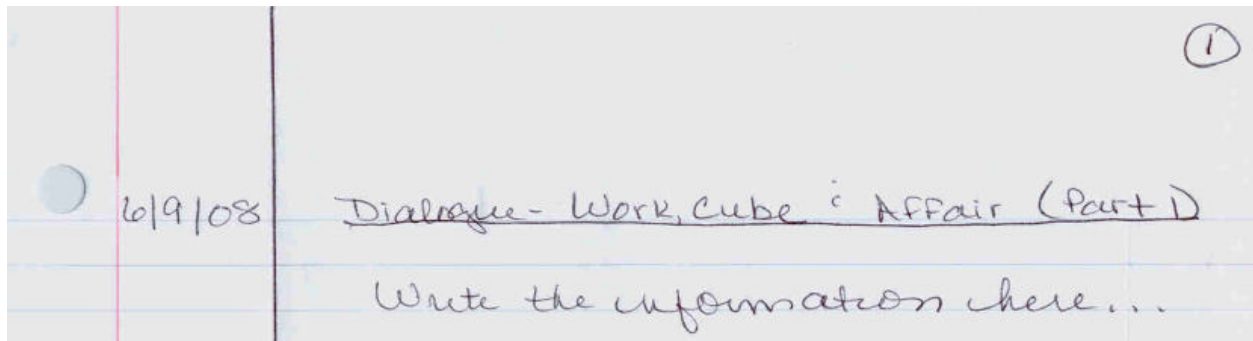 ①
6/9/08 Dialogue - Work, Cube : Affair (Part 1)
Write the information here...